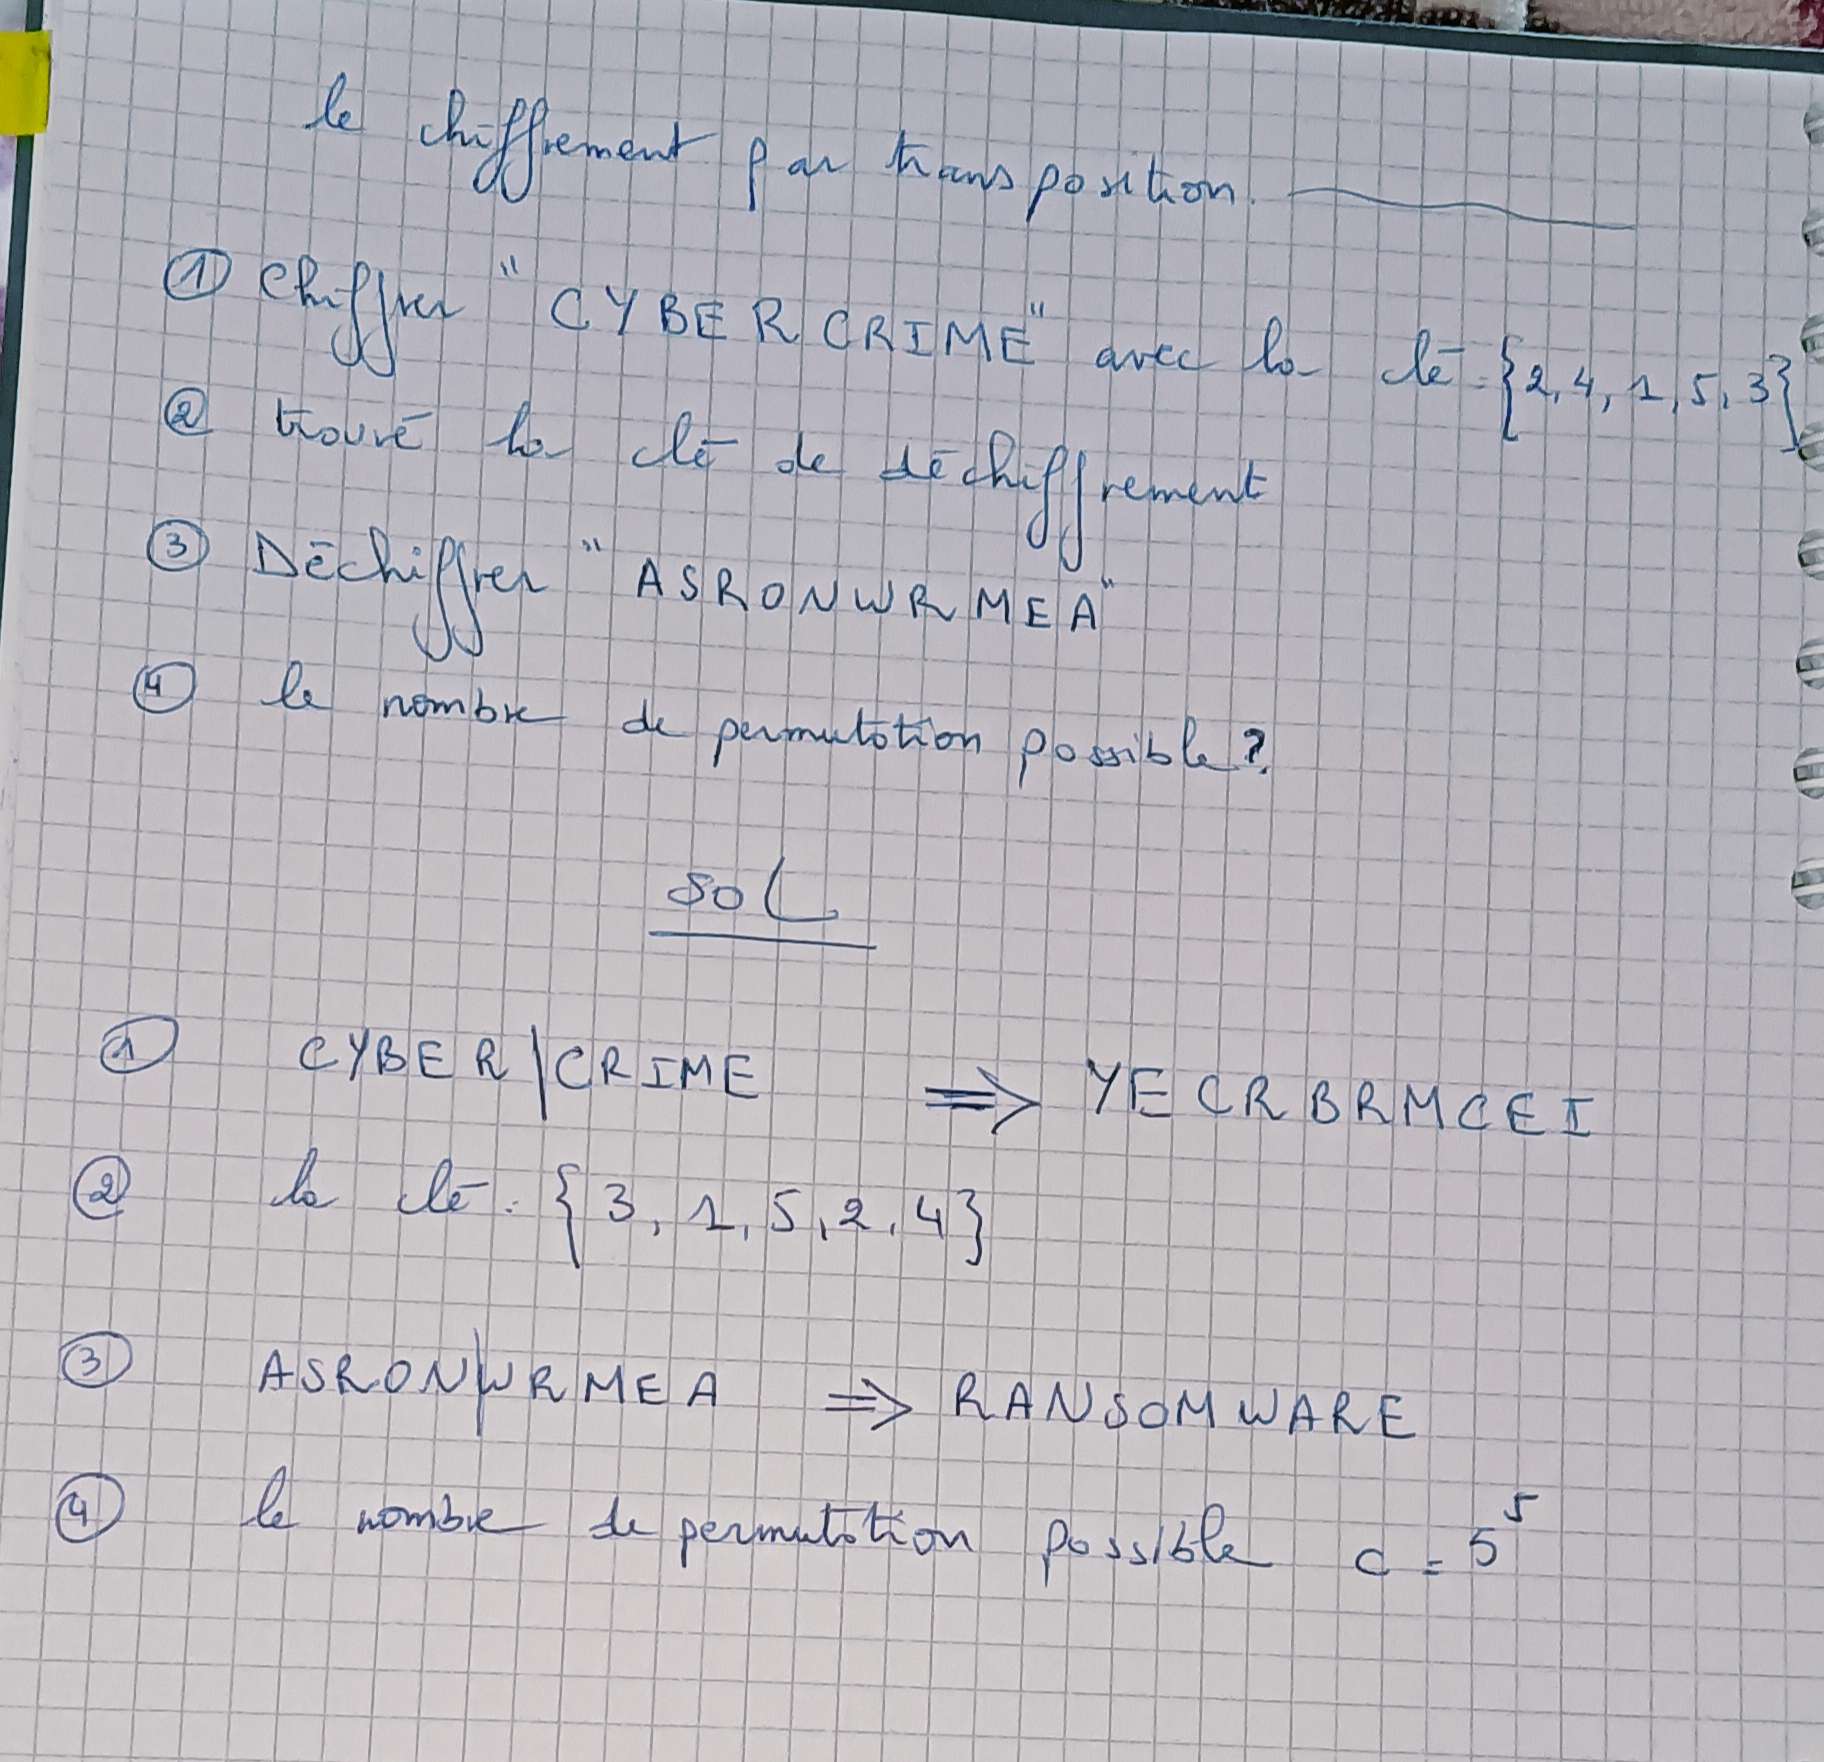 le chiffrement par transposition.
① Chiffrer "CYBERCRIME" avec la clé = {2, 4, 1, 5, 3}
② trouvé la clé de déchiffrement
③ Déchiffrer "ASRONWRMEA"
④ le nombre de permutation possible?
SOL
① CYBER | CRIME ⇒ YECRBRMCEI
② la clé : {3, 1, 5, 2, 4}
③ ASRON | WRMEA ⇒ RANSOMWARE
④ le nombre de permutation possible c = 5⁵